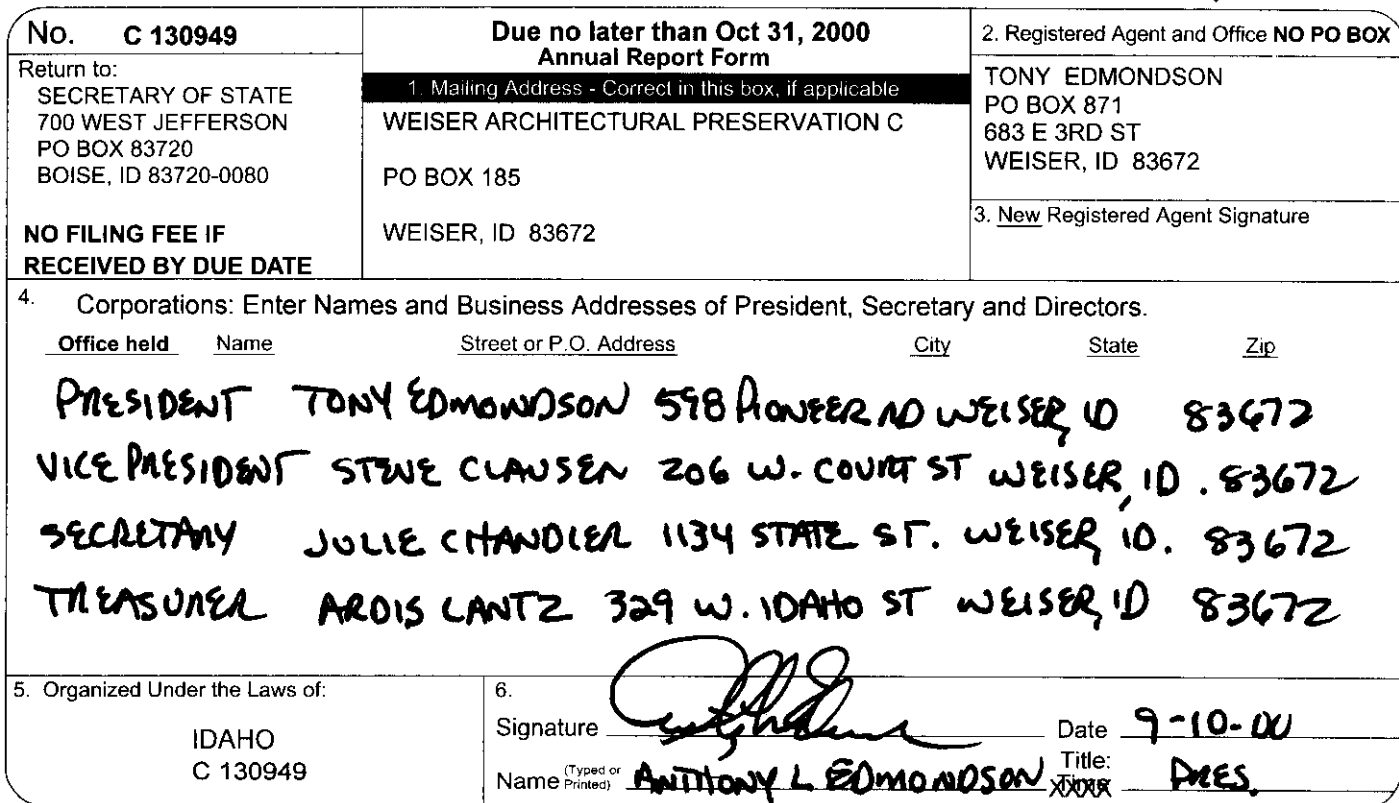 No. C 130949
Return to:
SECRETARY OF STATE
700 WEST JEFFERSON
PO BOX 83720
BOISE, ID 83720-0080
NO FILING FEE IF
RECEIVED BY DUE DATE
Due no later than Oct 31, 2000
Annual Report Form
1. Mailing Address - Correct in this box, if applicable
WEISER ARCHITECTURAL PRESERVATION C
PO BOX 185
WEISER, ID 83672
2. Registered Agent and Office NO PO BOX
TONY EDMONDSON
PO BOX 871
683 E 3RD ST
WEISER, ID 83672
3. New Registered Agent Signature
4. Corporations: Enter Names and Business Addresses of President, Secretary and Directors.
Office held Name Street or P.O. Address City State Zip
PRESIDENT TONY EDMONDSON 598 PIONEER RD WEISER, ID 83672
VICE PRESIDENT STEVE CLAUSEN 206 W. COURT ST WEISER, ID. 83672
SECRETARY JULIE CHANDLER 1134 STATE ST. WEISER, ID. 83672
TREASURER ARDIS LANTZ 329 W. IDAHO ST WEISER, ID 83672
5. Organized Under the Laws of:
IDAHO
C 130949
6.
Signature Date 9-10-00
Name (Typed or Printed) ANTHONY L EDMONDSON Title: PRES.